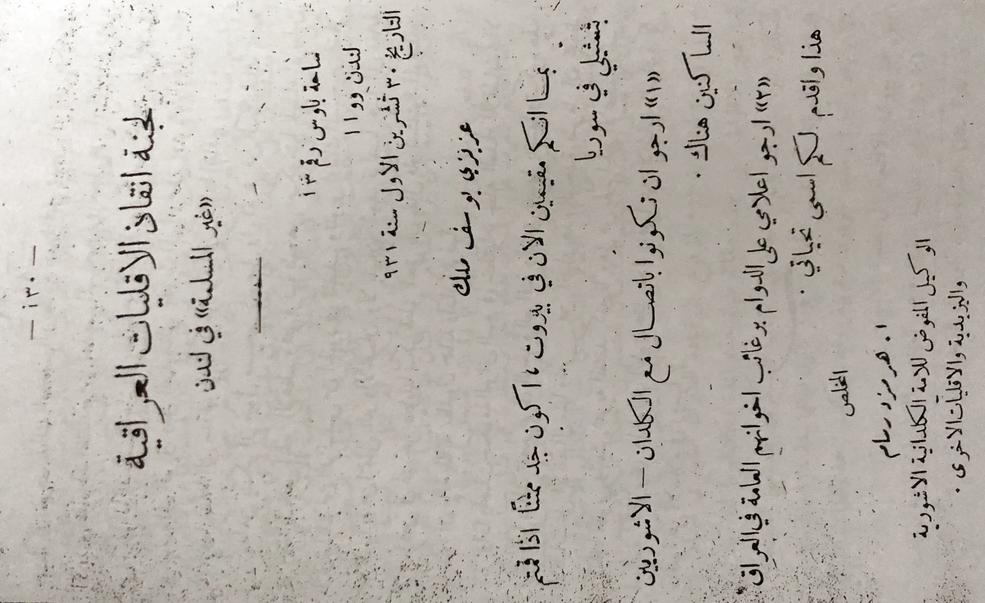 — ١٣٠ —
لجنة انقاذ الاقليات العراقية
«غير المسلمة» في لندن
ساحة باوس رقم ١٣
لندن وو ١١
التاريخ ٣٠ تشرين الاول سنة ٩٣١
عزيزي يوسف ملك
بما انكم مقيمين الآن في بيروت، اكون جد ممتنًا اذا قمتم
بتمثيلي في سوريا
«١» ارجو ان تكونوا باتصال مع الكلدان — الاشوريين
الساكنين هناك.
«٢» ارجو اعلامي على الدوام برغائب اخوانهم العامة في العراق
هذا واقدم لكم اسمى تحياتي.
المخلص
ا. هرمزد رسام
الوكيل المفوض للامة الكلدانية الاشورية
واليزيدية والاقليات الاخرى.